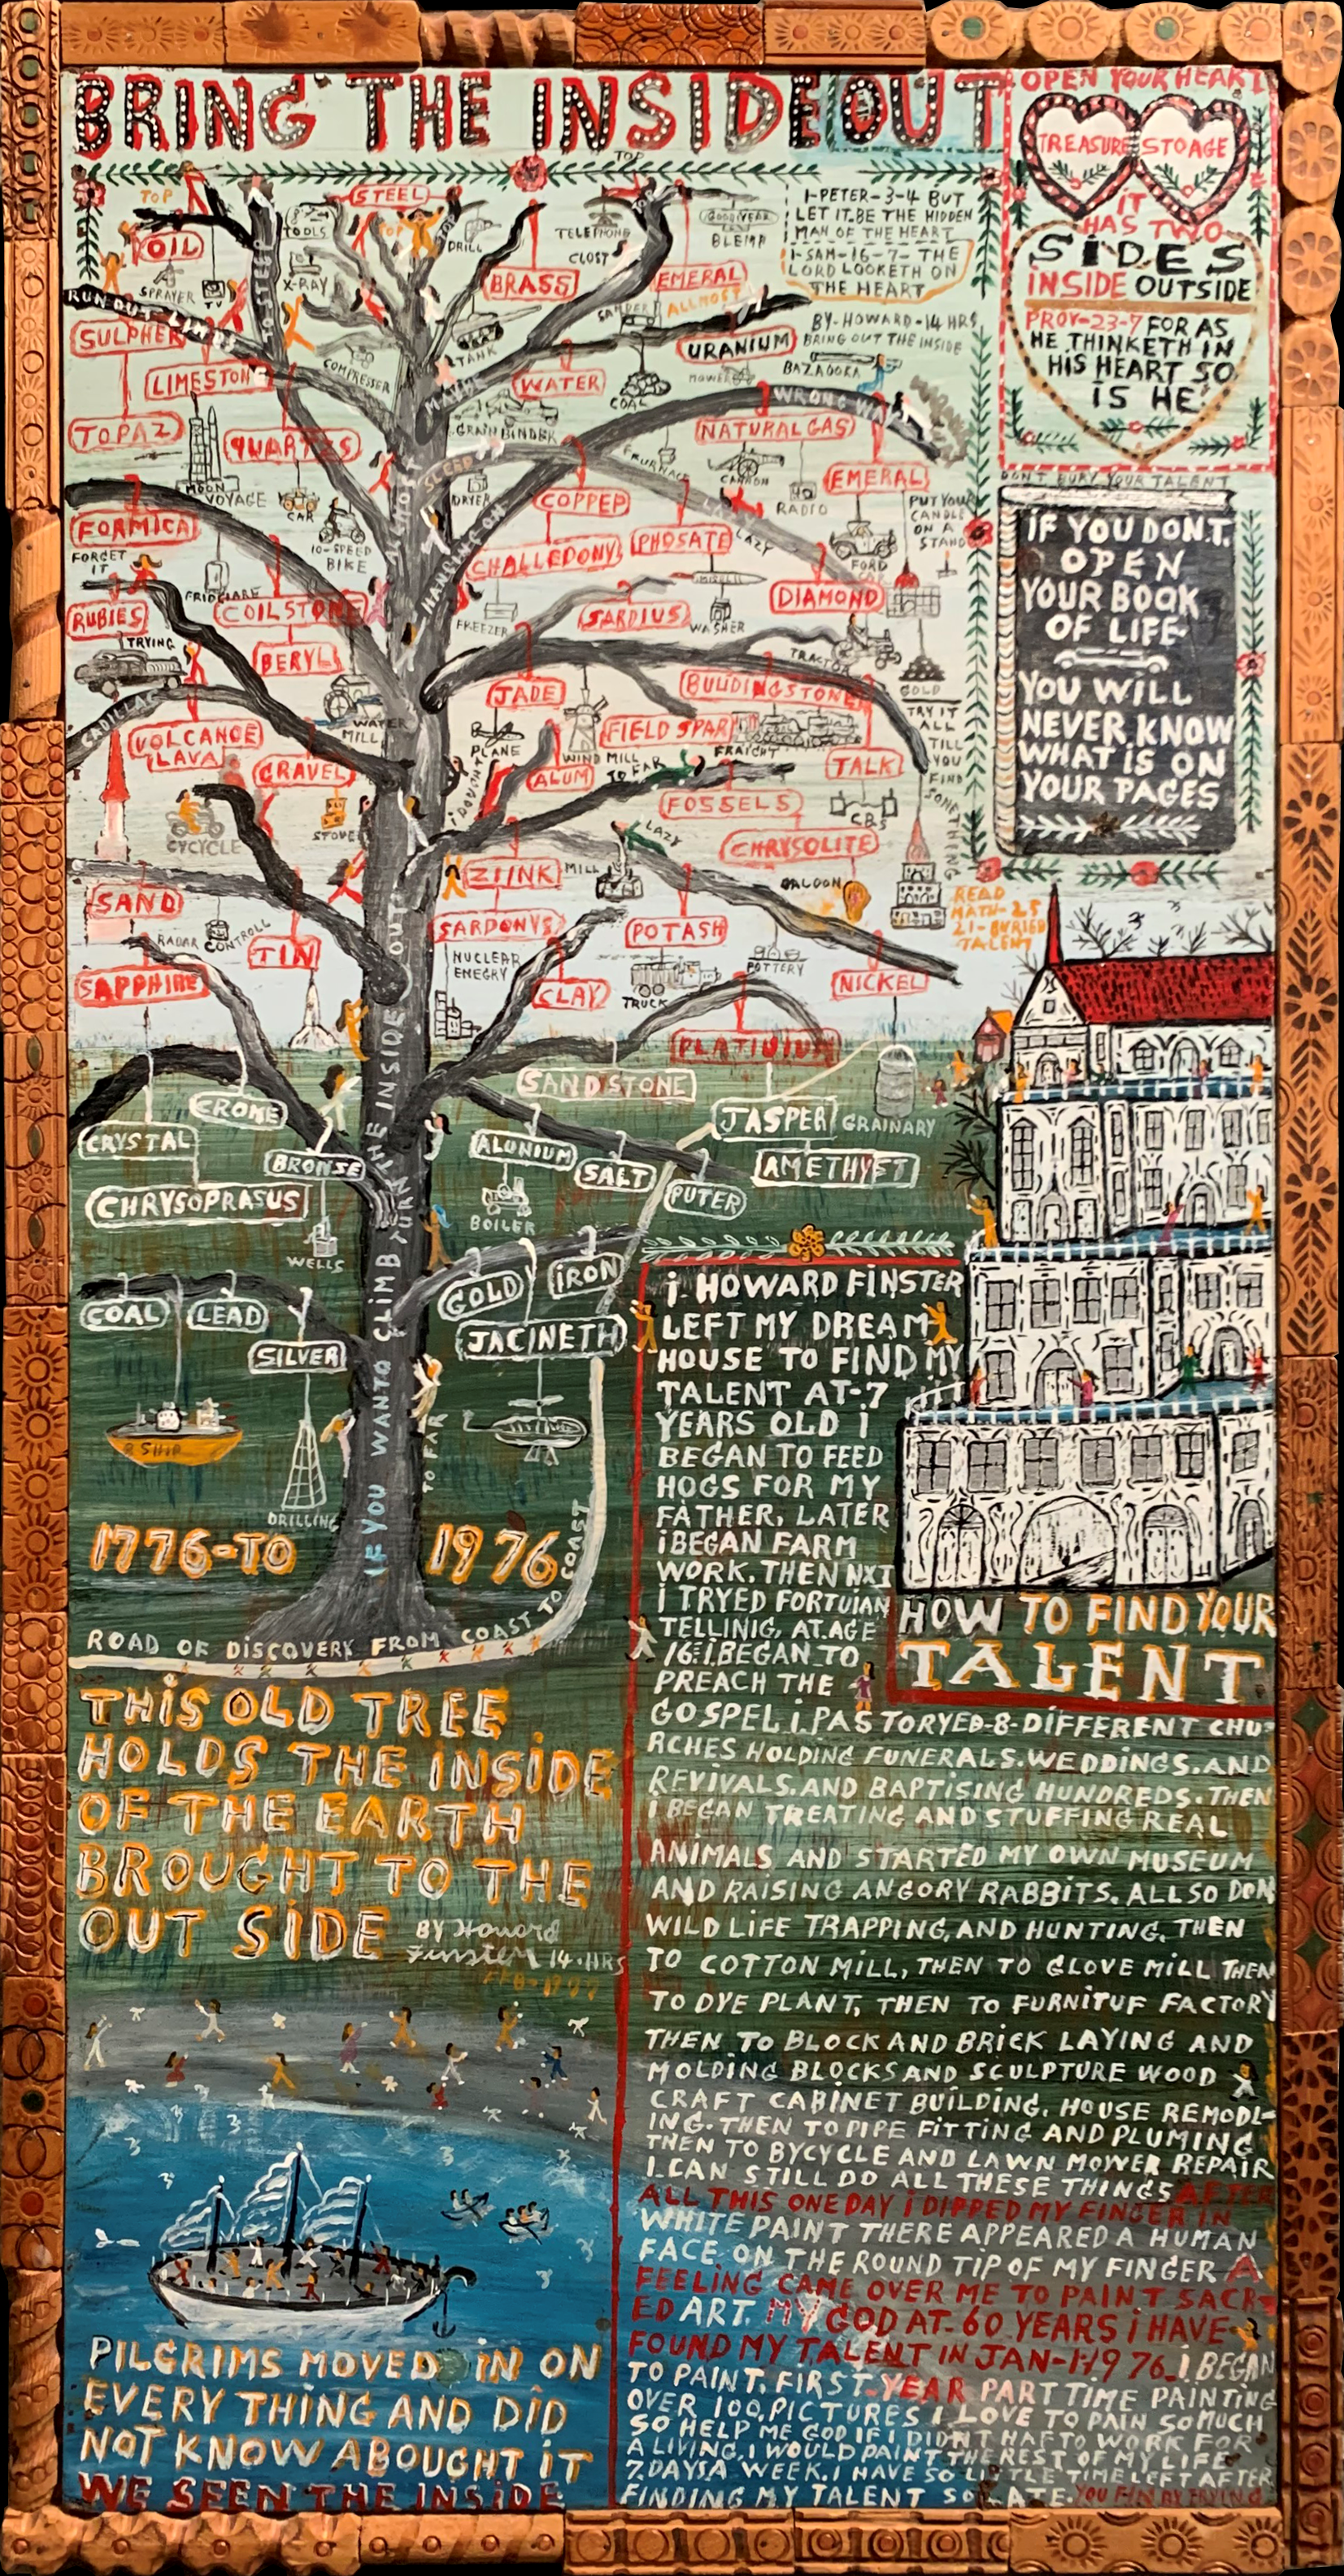 BRING THE INSIDE OUT
TOP
OPEN YOUR HEART
TREASURE STOAGE
IT
HAS TWO
SIDES
INSIDE OUTSIDE
PROV-23-7 FOR AS
HE THINKETH IN
HIS HEART SO
IS HE
DON'T BURY YOUR TALENT
IF YOU DON.T.
OPEN
YOUR BOOK
OF LIFE
YOU WILL
NEVER KNOW
WHAT IS ON
YOUR PAGES
READ
MATH-25
21-BURIED
TALENT
1-PETER-3-4 BUT
LET IT.BE THE HIDDEN
MAN OF THE HEART
1-SAM-16-7-THE
LORD LOOKETH ON
THE HEART
BY-HOWARD-14 HRS
BRING OUT THE INSIDE
TOP
STEEL
OIL
TOOLS
TOP
STOP
DRILL
TELEPHONE
GOODYEAR
BLEMP
CLOST
SPRAYER
TV
X-RAY
BRASS
EMERAL
ALLMOST
RUN OUT LIMB
TO STEEP
SULPHER
LIMESTON
COMPRESSER
TANK
SANDER
URANIUM
BAZOOKA
MOWER
WATER
COAL
MAIN
WRONG WAY
TOPAZ
QUARTZES
GRAIN BINDER
NATURAL GAS
MOON
VOYAGE
CAR
10-SPEED
BIKE
ALMOST
SLEEP
DRYER
FURNACE
CANNON
RADIO
EMERAL
COPPEP
LAZY
FORMICA
HANGING ON
CHALLEDONY
PHOSATE
FORD
CAR
PUT YOUR
CANDLE
ON A
STAND
FORGET
IT
FRIDGLARE
COILSTONE
FREEZER
SARDIUS
WASHER
DIAMOND
RUBIES
TRYING
BERYL
TRACTOR
GOLD
CADILLAC
JADE
BULIDINGSTONE
WATER
MILL
PLANE
WIND MILL
FIELD SPAR
FRAIGHT
TRY IT
ALL
TILL
YOU
FIND
SOMETHING
VOLCANOE
LAVA
GRAVEL
I DOUBT IT
ALUM
TO FAR
TALK
STOVE
FOSSELS
CBS
CYCYCLE
LAZY
CHRYSOLITE
SAND
ZIINK
MILL
BALOON
RADAR
CONTROLL
TIN
SARDONYS
POTASH
SAPPHIRE
NUCLEAR
ENEGRY
CLAY
TRUCK
POTTERY
NICKEL
PLATIUIUM
CRONE
SANDSTONE
CRYSTAL
JASPER
GRAINARY
BRONSE
ALUNIUM
SALT
AMETHYET
CHRYSOPRASUS
PUTER
BOILER
WELLS
COAL
LEAD
GOLD
IRON
SILVER
JACINETH
SHIP
DRILLING
TO FAR
IF YOU WANTO CLIMB TURN THE INSIDE OUT
1776-TO 1976
ROAD OF DISCOVERY FROM COAST TO COAST
THIS OLD TREE
HOLDS THE INSIDE
OF THE EARTH
BROUGHT TO THE
OUT SIDE
BY Howard
Finster 14.HRS
FEB-1977
PILGRIMS MOVED IN ON
EVERY THING AND DID
NOT KNOW ABOUGHT IT
WE SEEN THE INSIDE
HOW TO FIND YOUR
TALENT
I. HOWARD FINSTER
LEFT MY DREAM
HOUSE TO FIND MY
TALENT AT-7
YEARS OLD I
BEGAN TO FEED
HOGS FOR MY
FATHER, LATER
I BEGAN FARM
WORK. THEN NXT
I TRYED FORTUIAN
TELLINIG, AT.AGE
16 I.BEGAN TO
PREACH THE
GOSPEL I.PASTORYED-8-DIFFERENT CHU-
RCHES HOLDING FUNERALS.WEDDINGS.AND
REVIVALS.AND BAPTISING HUNDREDS.THEN
I BEGAN TREATING AND STUFFING REAL
ANIMALS AND STARTED MY OWN MUSEUM
AND RAISING ANGORY RABBITS. ALLSO DON
WILD LIFE TRAPPING, AND HUNTING. THEN
TO COTTON MILL, THEN TO GLOVE MILL THEN
TO DYE PLANT, THEN TO FURNITUF FACTORY
THEN TO BLOCK AND BRICK LAYING AND
MOLDING BLOCKS AND SCULPTURE WOOD
CRAFT CABINET BUILDING. HOUSE REMODL-
ING. THEN TO PIPE FITTING AND PLUMING
THEN TO BYCYCLE AND LAWN MOWER REPAIR
I.CAN STILL DO ALL THESE THINGS AFTER
ALL THIS ONE DAY I DIPPED MY FINGER IN
WHITE PAINT THERE APPEARED A HUMAN
FACE ON THE ROUND TIP OF MY FINGER A
FEELING CAME OVER ME TO PAINT SACR-
ED ART. MY GOD AT-60 YEARS I HAVE
FOUND MY TALENT IN JAN-1-1976. I BEGAN
TO PAINT. FIRST YEAR PART TIME PAINTING
OVER 100.PICTURES I LOVE TO PAIN SO MUCH
SO HELP ME GOD IF I.DIDN'T HAFTO WORK FOR
A LIVING. I WOULD PAINT THE REST OF MY LIFE
7.DAYSA WEEK. I HAVE SO LITTLE TIME LEFT AFTER
FINDING MY TALENT SO LATE. YOU FIN BY TRYING